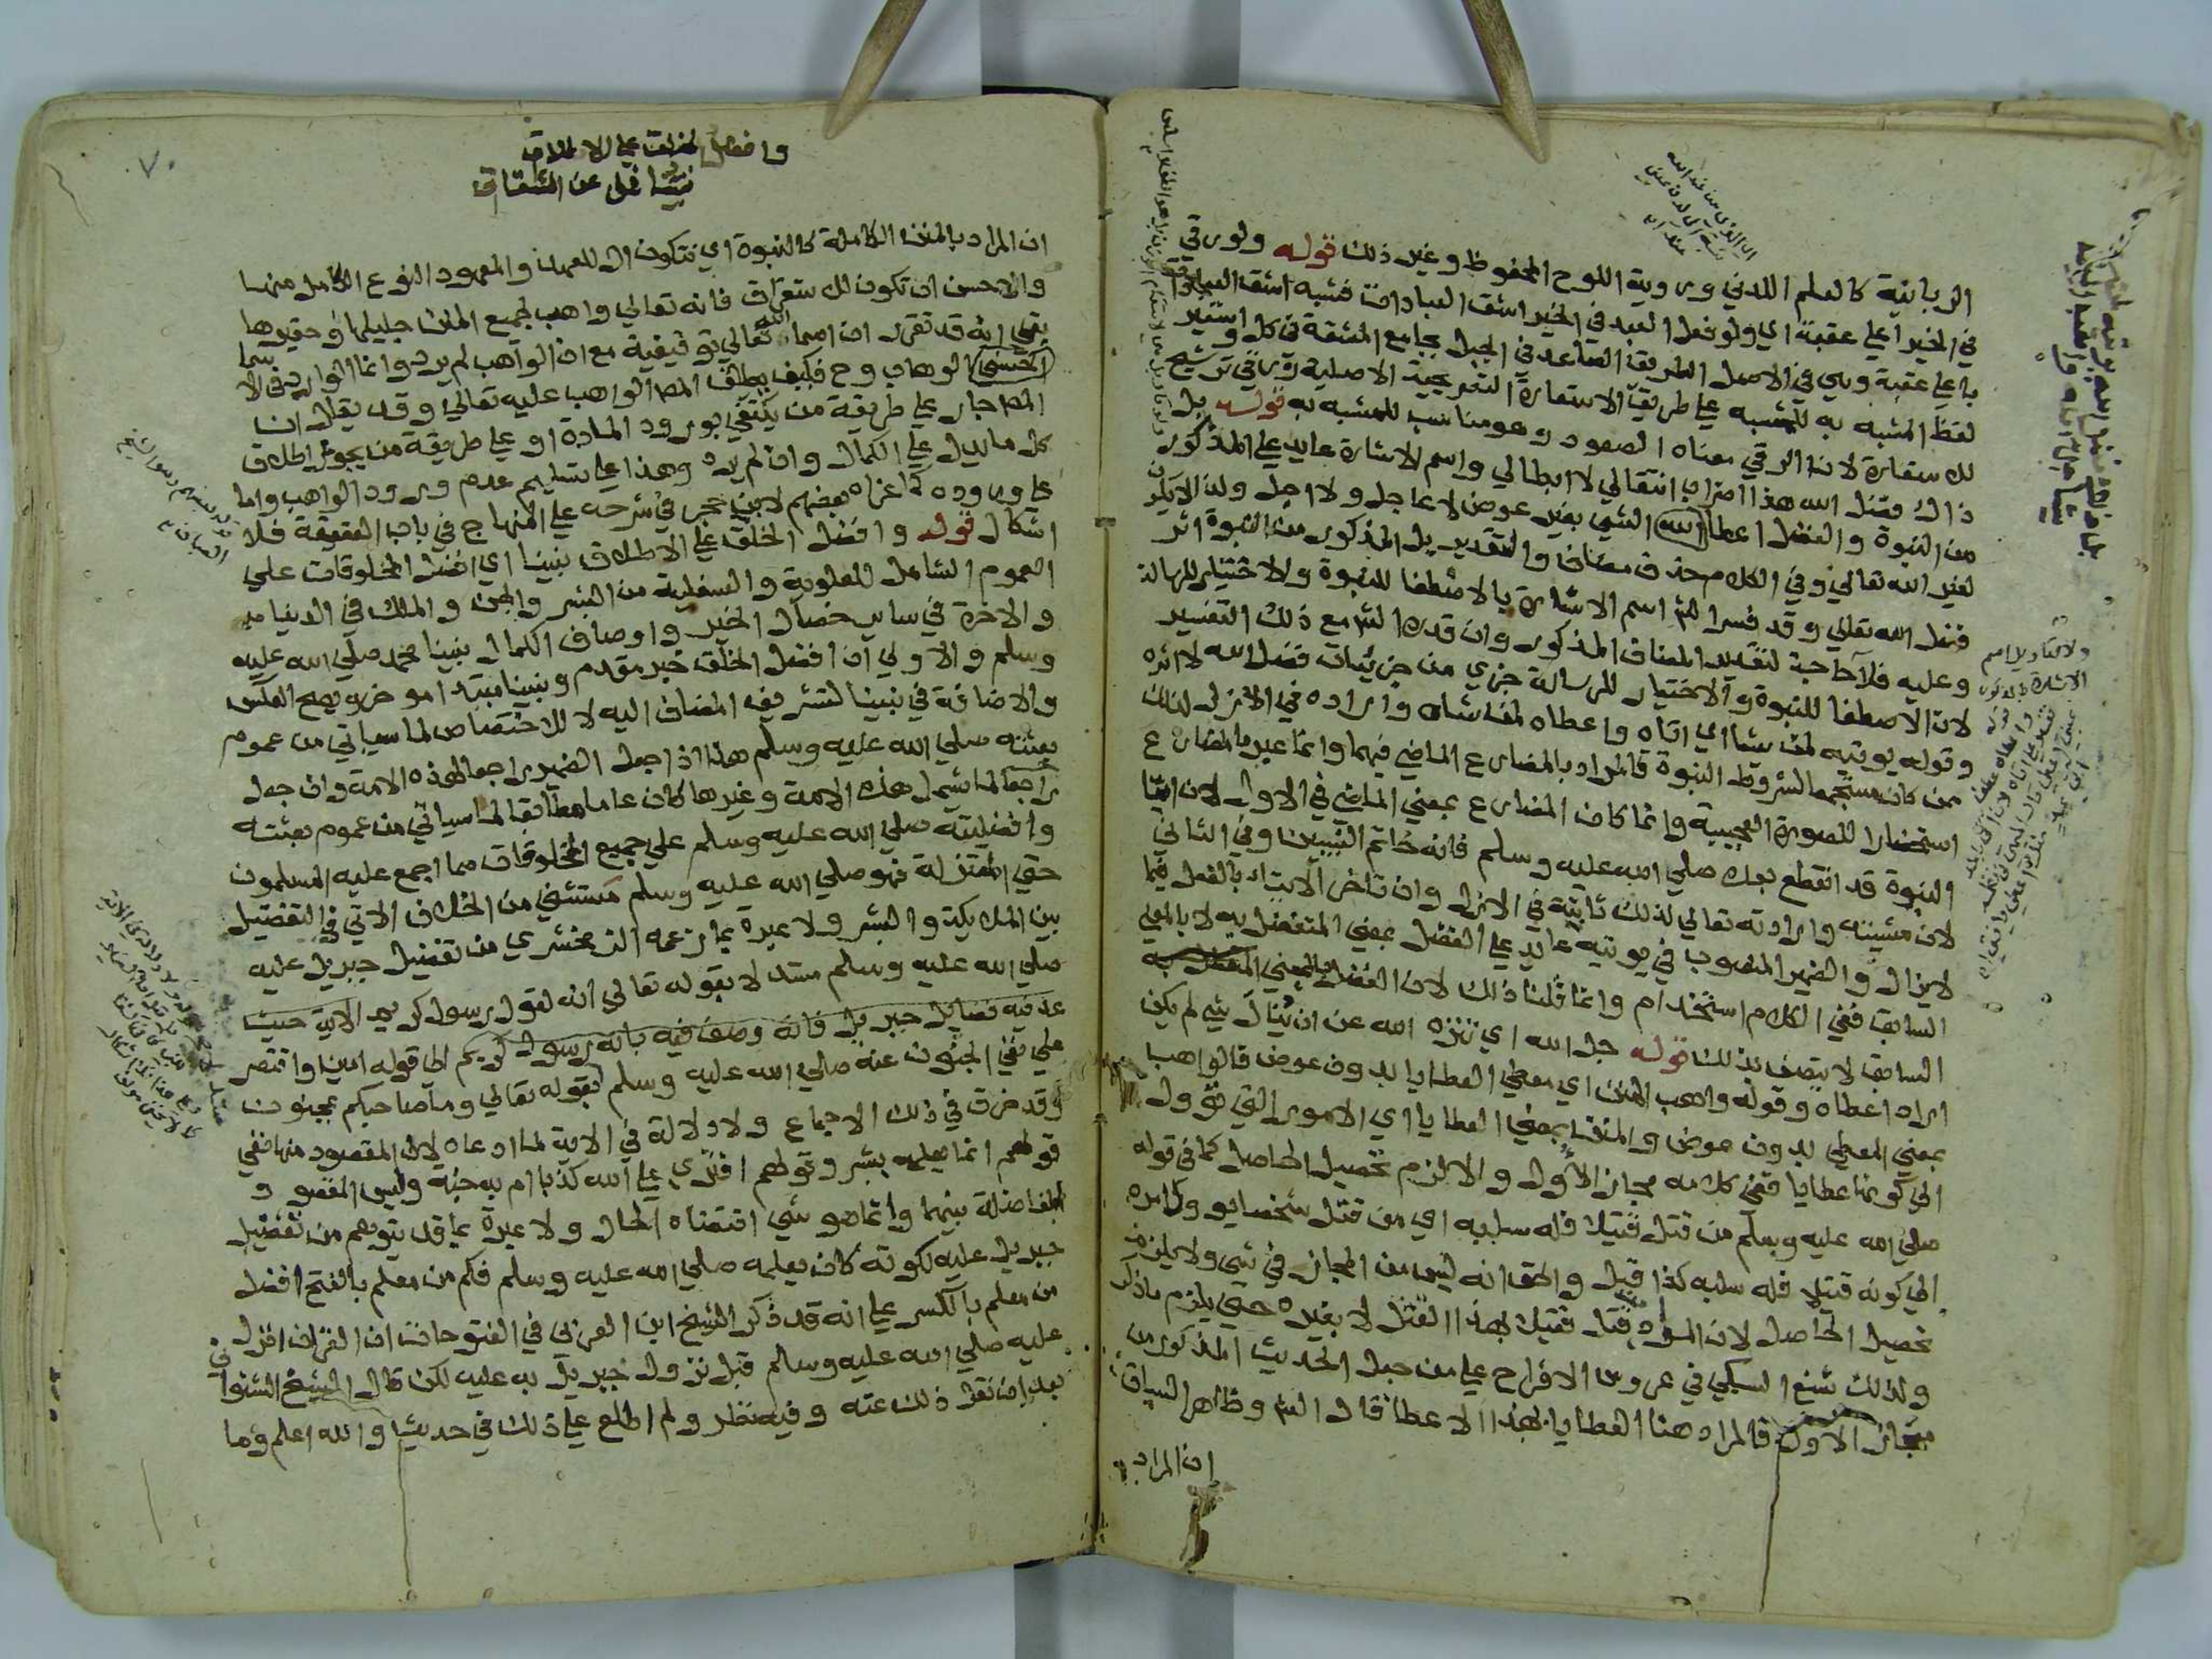 الربانية كالعلم اللدني ورؤية اللوح المحفوظ وغير ذلك قوله ولو رقي
في الخير اعلي عقبة اي ولو فعل العبد في الخير اشق العبادات فشبه اشق العبادات
باعلي عقبة وهي في الاصل الطريق الصاعد في الجبل بجامع المشقة في كل واستعير
لفظ المشبه به للمشبه علي طريق الاستعارة التصريحية الاصلية ورقي ترشيح
للاستعارة لان الرقي معناه الصعود وهو مناسب للمشبه به قوله بل
ذاك فضل الله هذا اضراب انتقالي لا ابطالي واسم الاشارة عايد علي المذكور
من النبوة والفضل اعطا الشي بغير عوض لا عاجل ولا اجل ولذا لا يكون
لغير الله تعالي وفي الكلام حذف مضاف والتقدير بل المذكور من النبوة اثر
فضل الله تعالي وقد فسر الش اسم الاشارة بالاصطفا للنبوة والاختيار للرسالة
وعليه فلا حاجة لتقدير المضاف المذكور وان قدره الش مع ذلك التفسير
لان الاصطفا للنبوة والاختيار للرسالة جزي من جزئيات فضل الله لا اثره
وقوله يوتيه لمن يشا اي اتاه واعطاه لمن شاه واراده في الازل لذلك
ممن كان مستجمعا لشروط النبوة فالمراد بالمضارع الماضي فيهما وانما عبر بالمضارع
استحضارا للصورة العجيبة وانما كان المضارع بمعني الماضي في الاول لان ايتا
النبوة قد انقطع بعده صلي الله عليه وسلم فانه خاتم النبيين وفي الثاني
لان مشيئته وارادته تعالي لذلك ثابتة في الازل وان تاخر الايتاء بالفعل فيما
لا يزال والضمير المنصوب في يوتيه عايد علي الفضل بمعني المتفضل به لا بالمعني
السابق ففي الكلام استخدام وانما قلنا ذلك لان الفضل بالمعني
السابق لا يتصف بذلك قوله جل الله اي تنزه الله عن ان ينال شي لم يكن
اراد اعطاه وقوله واهب المنن اي معطي العطايا بدون عوض فالواهب
بمعني المعطي بدون عوض والمنن بمعني العطايا اي الامور التي تؤول
الي كونها عطايا ففي كلامه مجاز الاول والا لزم تحصيل الحاصل كما في قوله
صلي الله عليه وسلم من قتل قتيلا فله سلبه اي من قتل شخصا يوول امره
الي كونه قتيلا فله سلبه كذا قيل والحق انه ليس من المجاز في شي ولا يلزم
تحصيل الحاصل لان المراد قتل قتيلا بهذا القتل لا بغيره حتي يلزم ما ذكر
ولذلك شنع السبكي في عروس الافراح علي من جعل الحديث المذكور من
مجاز الاول فالمراد هنا العطايا بهذا الاعطا قال الش وظاهر السياق
ان المراد
٧٠
وافضل الخلق علي الاطلاق
نبينا فمل عن الشقاق
ان المراد بالمنن الكاملة كالنبوة اي فتكون ال للعهد والمعهود النوع الكامل منها
والاحسن ان تكون للاستغراق فانه تعالي واهب لجميع المنن جليلها وحقيرها
بقي انه قد تقرر ان اسما الله تعالي توقيفية مع ان الواهب لم يرد وانما الوارد في الاسما
الحسني الوهاب وح فكيف يطلق المص الواهب عليه تعالي وقد يقال ان
المص جار علي طريقة من يكتفي بورود المادة او علي طريقة من يجوز اطلاق
كل ما يدل علي الكمال وان لم يرد وهذا علي تسليم عدم ورود الواهب واما
علي وروده كما عزاه بعضهم لابن حجر في شرحه علي المنهاج في باب العقيقة فلا
اشكال قوله وافضل الخلق علي الاطلاق نبينا اي افضل المخلوقات علي
العموم الشامل للعلوية والسفلية من البشر والجن والملك في الدنيا
والاخرة في ساير خصال الخير واوصاف الكمال نبينا محمد صلي الله عليه
وسلم والاولي ان افضل الخلق خبر مقدم ونبينا مبتدا موخر ويصح العكس
والاضافة في نبينا لتشريف المضاف اليه لا للاختصاص لما سياتي من عموم
بعثته صلي الله عليه وسلم هذا اذ اجعل الضمير راجعا لهذه الامة وان جعل
راجعا لما يشمل هذه الامة وغيرها كان عاما مطابقا لما سياتي من عموم بعثته
وافضليته صلي الله عليه وسلم علي جميع المخلوقات مما اجمع عليه المسلمون
حتي المعتزلة فهو صلي الله عليه وسلم مستثني من الخلاف الاتي في التفضيل
بين الملايكة والبشر ولا عبرة بما زعمه الزمخشري من تفضيل جبريل عليه
صلي الله عليه وسلم مستدلا بقوله تعالي انه لقول رسول كريم الاية حيث
عد فيه فضايل جبريل فانه وصف فيه بانه رسول كريم الي قوله امين واقتصر
علي نفي الجنون عنه صلي الله عليه وسلم بقوله تعالي وما صاحبكم بمجنون
وقد خرق في ذلك الاجماع ولا دلالة في الاية لما ادعاه لان المقصود منها نفي
قولهم انما يعلمه بشر وقولهم افتري علي الله كذبا ام به جنة وليس المقصود
المفاضلة بينهما وانما هو شي اقتضاه الحال ولا عبرة بما قد يتوهم من تفضيل
جبريل عليه لكونه كان يعلمه صلي الله عليه وسلم فكم من معلم بالفتح افضل
من معلم بالكسر علي انه قد ذكر الشيخ ابن العربي في الفتوحات ان القران انزل
عليه صلي الله عليه وسلم قبل نزول جبريل به عليه لكن قال الشيخ الشنواني
بعد ان نقل ذلك عنه وفيه نظر ولم اطلع علي ذلك في حديث والله اعلم وما